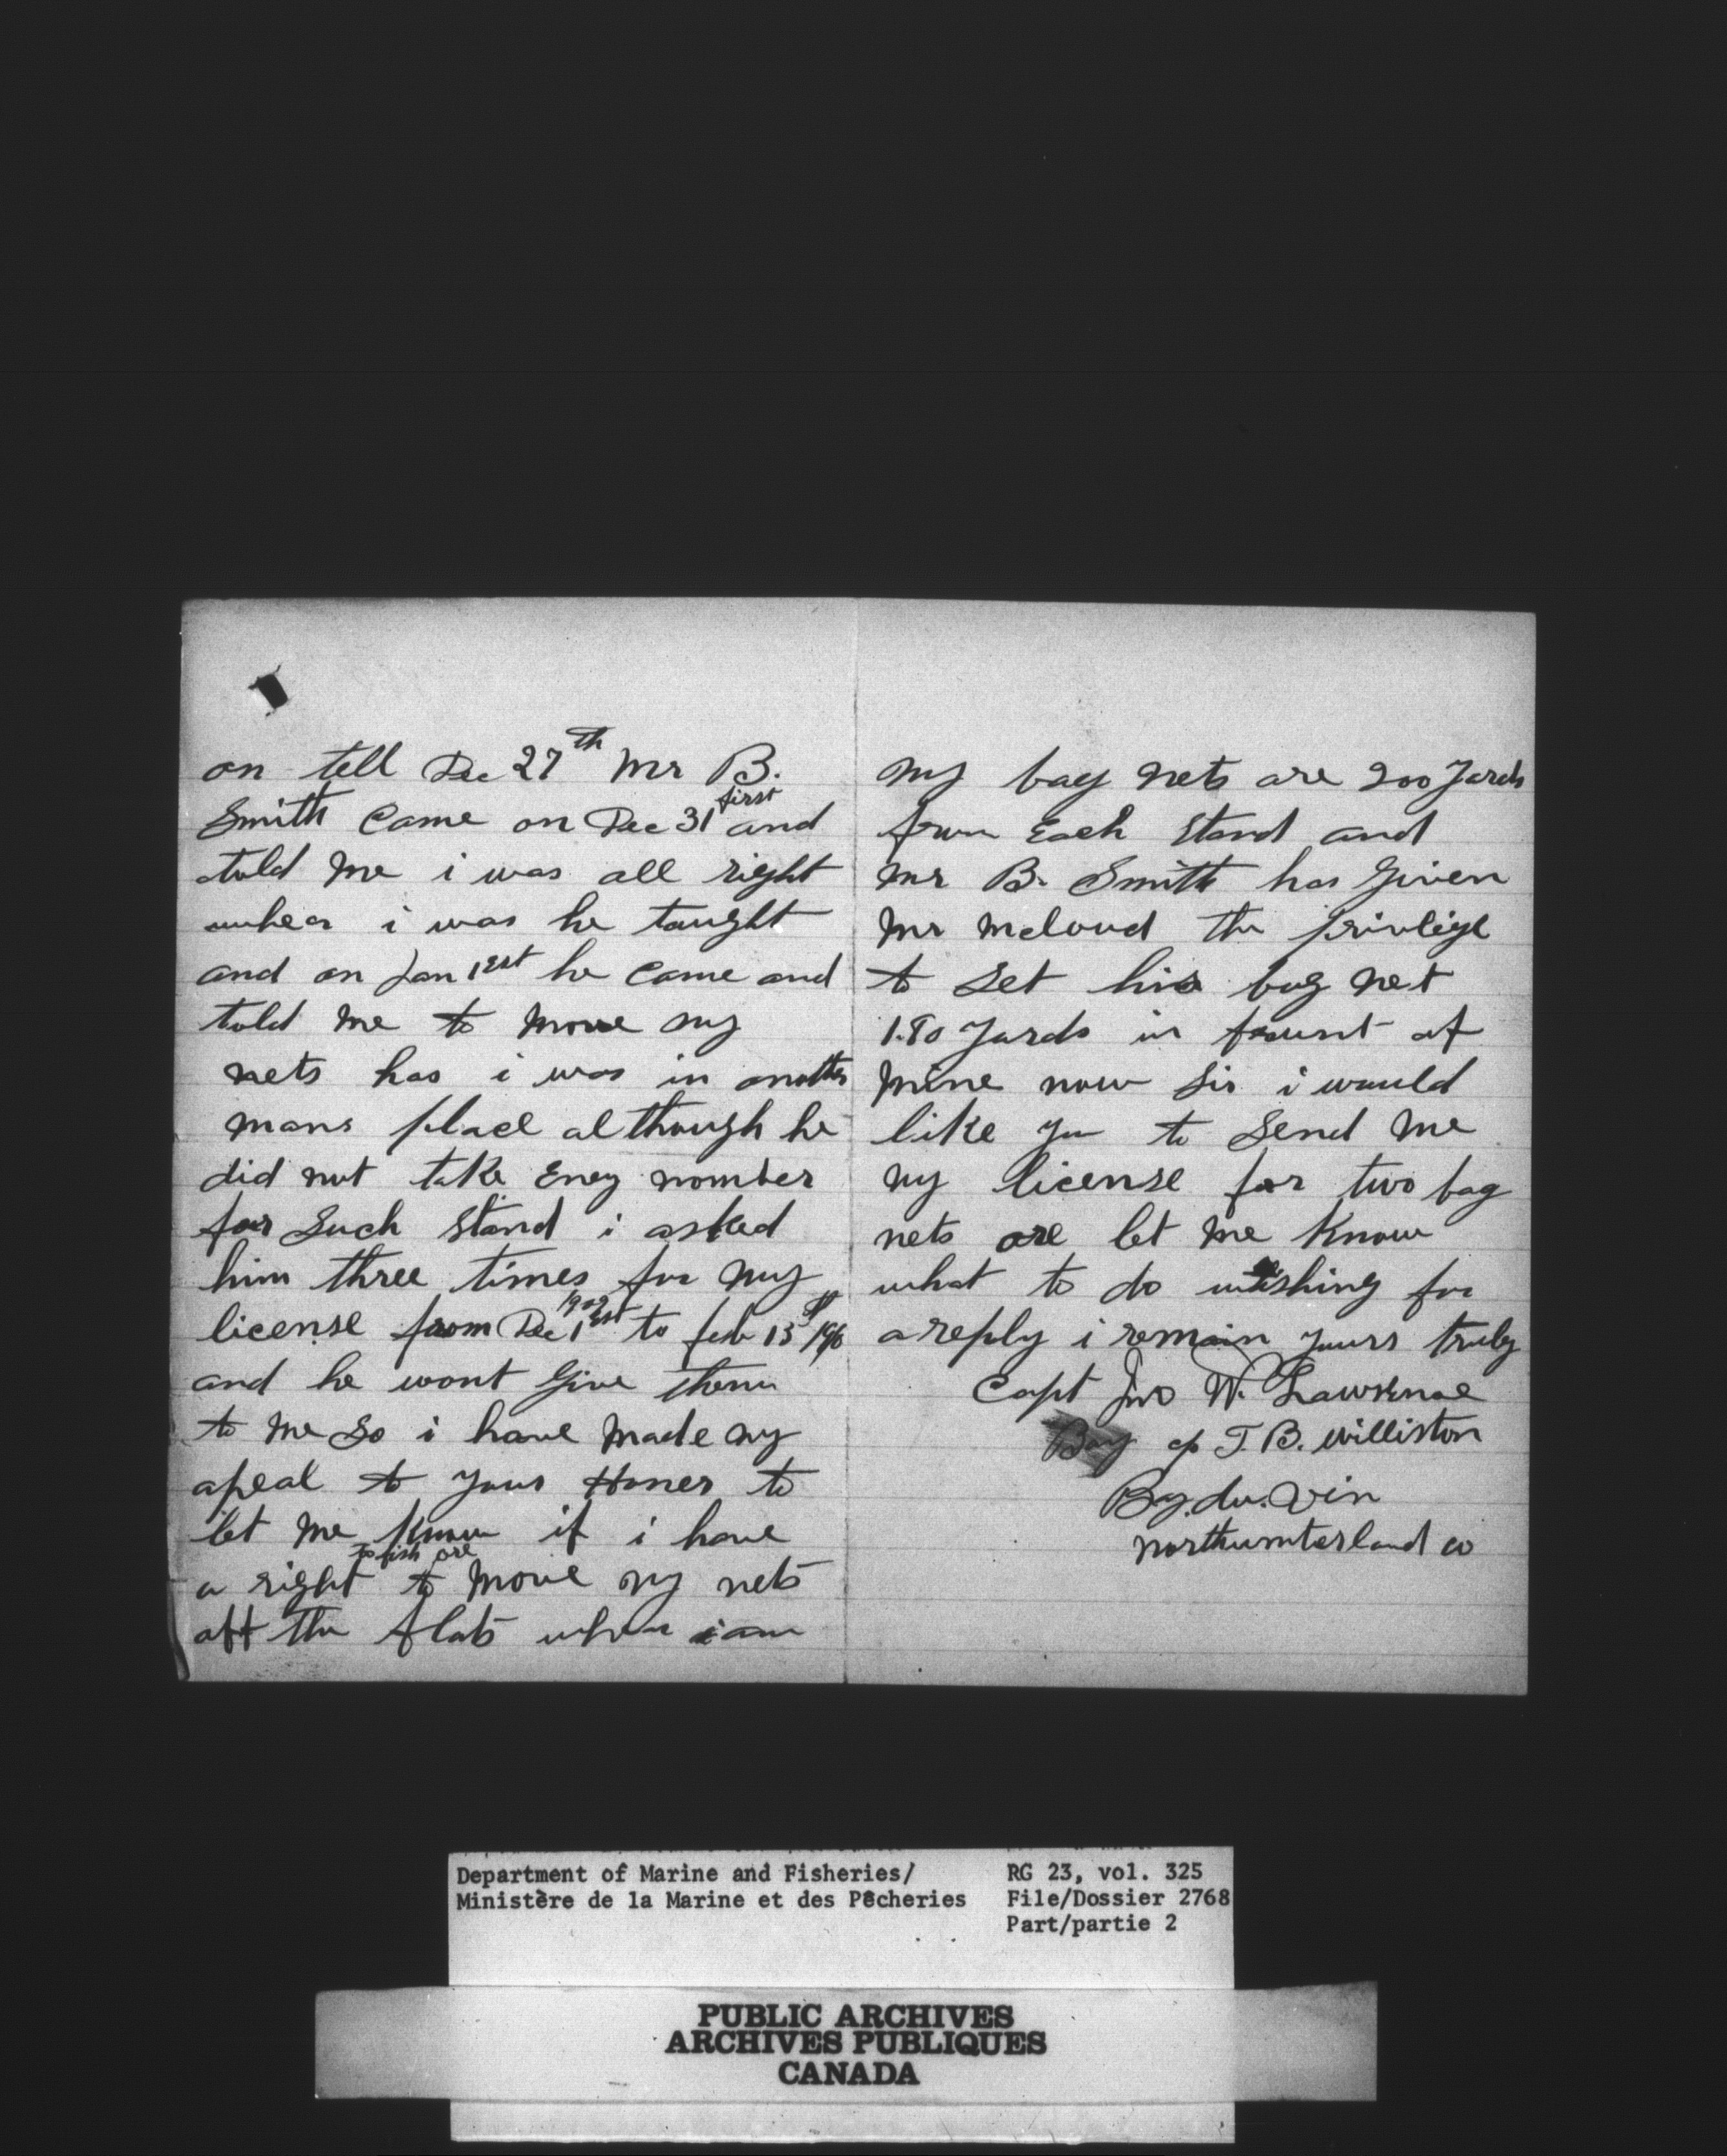 on tell Dec 27th Mr B.
Smith Came on Dec 31 first and
told me i was all right
whear i was he taught
and on Jan 1est he Came and
told me to move my
nets has i was in another
mans place although he
did not take Eney nomber
for Such Stand i asked
him three times for my
license from Dec 1est 1909 to feb 15
and he wont Give them
to me So i have made my
apeal to your Honer to
let me know if i have
a right to fish ore to move my nets
off the flats when i am
my bag nets are 200 yards
from Each Stand and
mr B. Smith has Given
Mr Mcloud the privlige
to Set his bag net
1.80 yards in fraunt of
mine now Sir i would
like you to Send me
my license for two bag
nets ore let me Know
what to do wishing for
a reply i remain yours truly
Capt Jno W. Lawrence
Bay of T B. Williston
Bay.du.Vin
northumberland co
Department of Marine and Fisheries/ RG 23, vol. 325
Ministère de la Marine et des Pêcheries File/Dossier 2768
Part/partie 2
PUBLIC ARCHIVES
ARCHIVES PUBLIQUES
CANADA